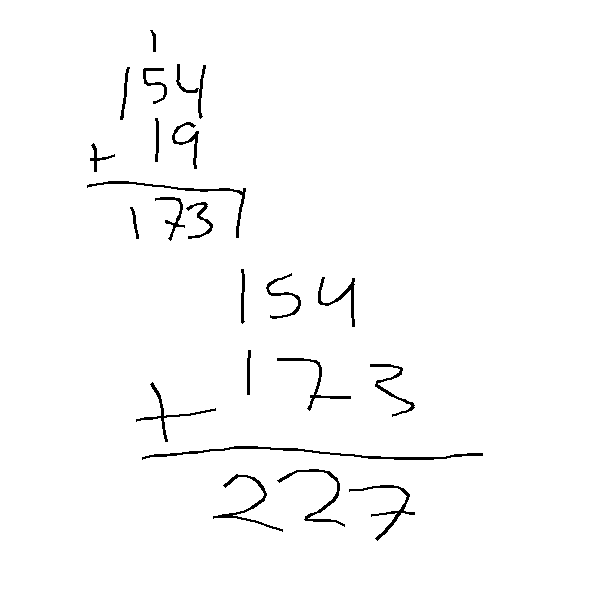 1
154
+ 19
173
154
+ 173
227